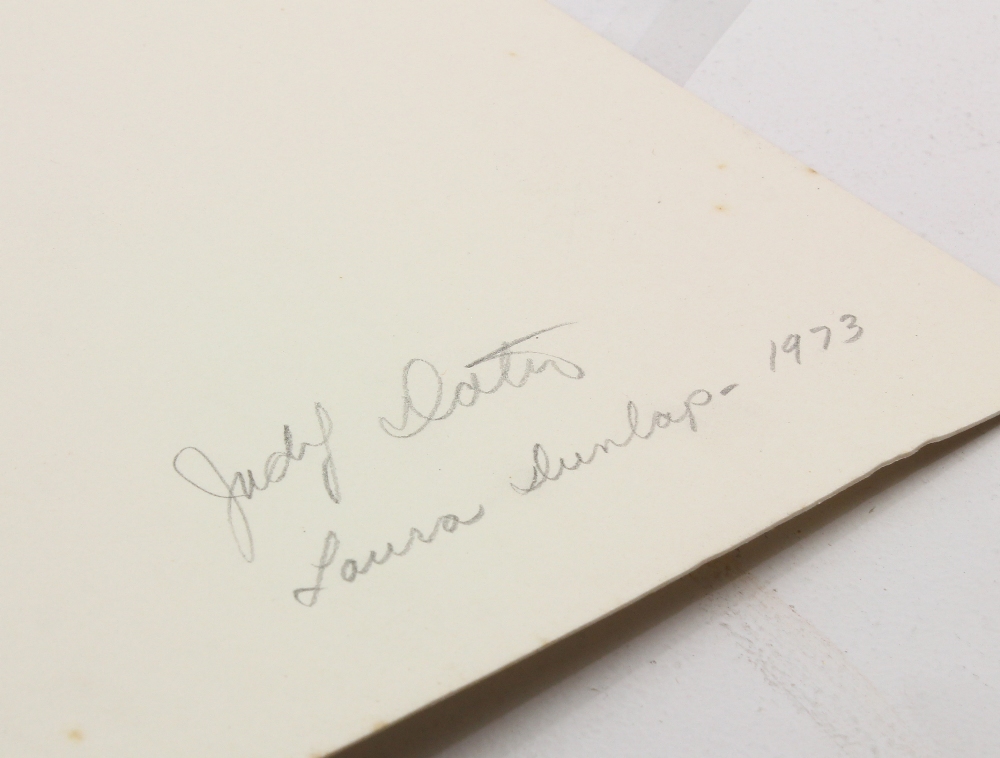 Judy Dater
Laura Dunlap - 1973